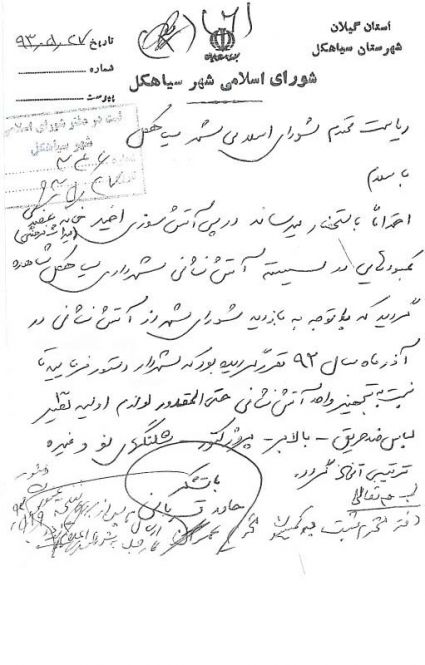 استان گیلان
شهرستان سیاهکل
شورای اسلامی شهر سیاهکل
تاریخ ۹۳،۵،۲۷
شماره
پیوست
ثبت در دفتر شورای اسلامی
شهر سیاهکل
ریاست محترم شورای اسلامی شهر سیاهکل
با سلام
احتراماً باستحضار میرساند در پی آتش سوزی اخیر خانه
کمبودهایی در سیستم آتش نشانی شهرداری سیاهکل مشاهده
گردید که با توجه به بازدید شورای شهر از آتش نشانی در
آذر ماه سال ۹۲ مقرر گردیده بود که شهردار دستور فرمایید تا
نسبت به تجهیز واحد آتش نشانی حتی المقدور لوازم اولیه نظیر
لباس ضد حریق - بالابر - پروژکتور شلنگهای نو و غیره
ترتیبی اتخاذ گردد.
با تشکر
بسمه تعالی
دفتر محترم ثبت